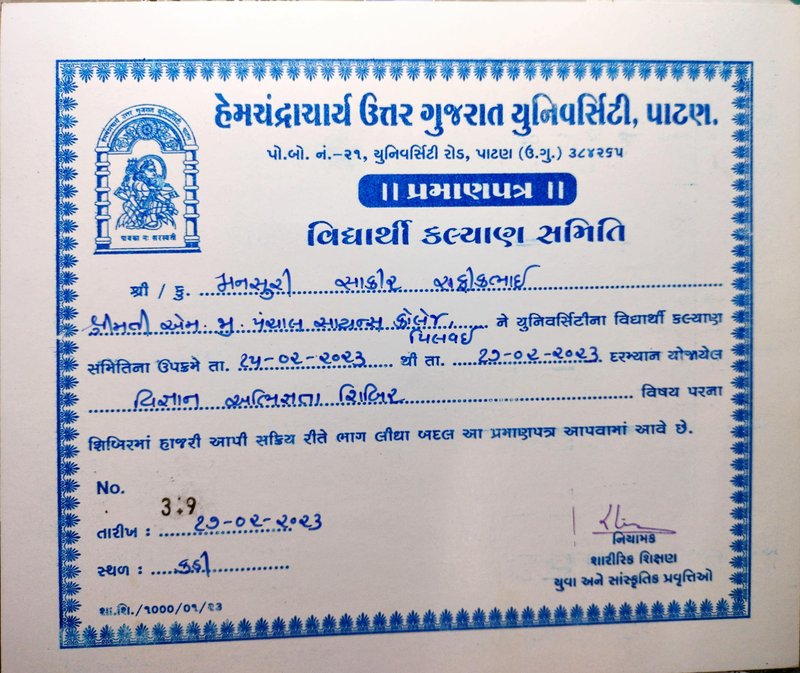 હેમચંદ્રાચાર્ય ઉત્તર ગુજરાત યુનિવર્સિટી, પાટણ.
પો.બો. નં.-૨૧, યુનિવર્સિટી રોડ, પાટણ (ઉ.ગુ.) ૩૮૪૨૬૫
।। પ્રમાણપત્ર ।।
વિદ્યાર્થી કલ્યાણ સમિતિ
શ્રી / કુ. મનસુરી સાકીર રફીકભાઈ
શ્રીમતી એમ. મુ. પંચાલ સાયન્સ કોલેજ, પિલવઈ ને યુનિવર્સિટીના વિદ્યાર્થી કલ્યાણ
સમિતિના ઉપક્રમે તા. ૨૫-૦૨-૨૦૨૩ થી તા. ૨૭-૦૨-૨૦૨૩ દરમ્યાન યોજાયેલ
વિજ્ઞાન અભિજ્ઞતા શિબિર વિષય પરના
શિબિરમાં હાજરી આપી સક્રિય રીતે ભાગ લીધા બદલ આ પ્રમાણપત્ર આપવામાં આવે છે.
No.
તારીખ : ૨૭-૦૨-૨૦૨૩
સ્થળ : કડી
નિયામક
શારીરિક શિક્ષણ
યુવા અને સાંસ્કૃતિક પ્રવૃત્તિઓ
શા.શિ./૧૦૦૦/૦૧/૨૩